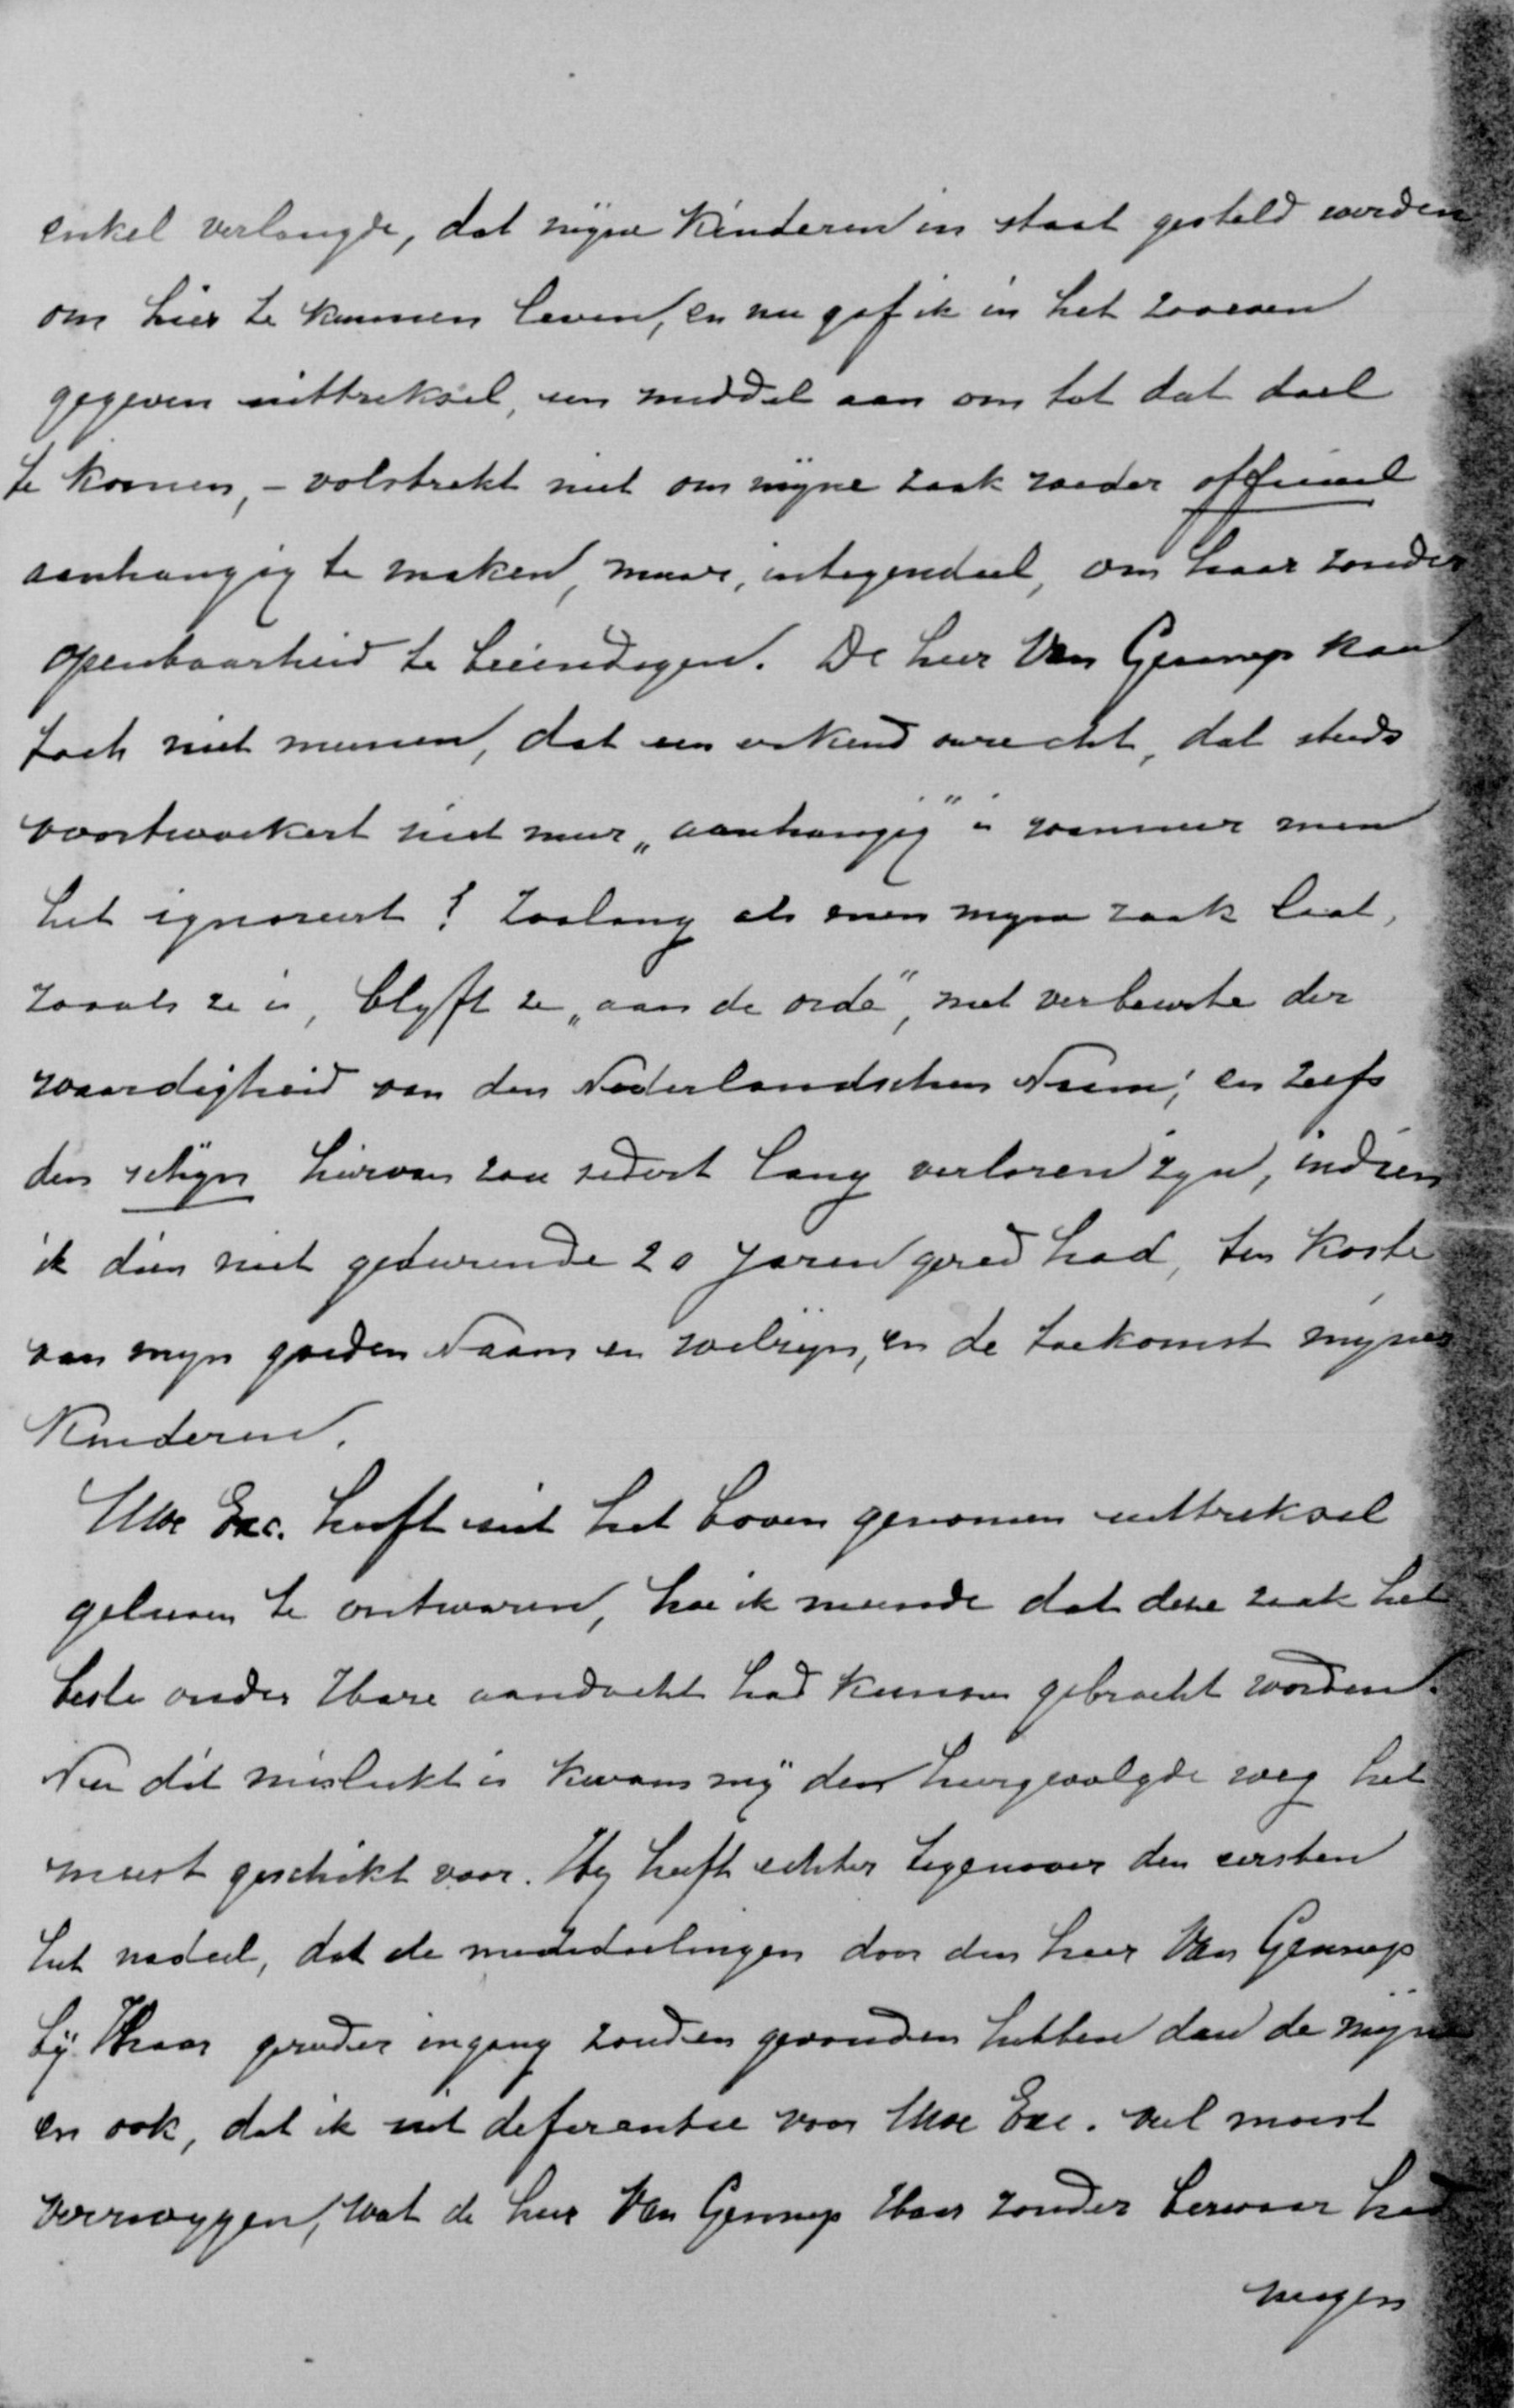 enkel verlangde, dat mijne Kinderen in staat gesteld werden
om hier te kunnen leven, en nu gaf ik in het zooeven
gegeven uittreksel, een middel aan om tot dat doel
te komen, – volstrekt niet om mijne zaak weder officieel
aanhangig te maken, maar, integendeel, om haar zonder
openbaarheid te beëindigen. De heer Van Gennep kan
toch niet meenen, dat een erkend onrecht, dat steeds
voortwoekert niet meer „aanhangig” is wanneer men
het ignoreert! Zoolang als men mijne zaak laat,
zooals ze is, blyft ze „aan de orde”, met verbeurte der
waardigheid van den Nederlandschen Naam; en zelfs
den schijn hiervan zou sedert lang verloren zyn, indien
ik dien niet gedurende 20 jaren gered had, ten koste
van myn goeden Naam en welzijn, en de toekomst mijner
Kinderen.
Uwe Exc. heeft uit het boven genomen uittreksel
gelieven te ontwaren, hoe ik meende dat deze zaak het
beste onder Hare aandacht had kunnen gebracht worden.
Nu dit mislukt is kwam mij den hiergevolgde weg het
meest geschikt voor. Hy heeft echter tegenover den eersten
het nadeel, dat de mededeelingen door den heer Van Gennep
bij Haar gereeder ingang zouden gevonden hebben dan de mijne
en ook, dat ik uit deferentie voor Uwe Exc. veel moest
verzwygen, wat de heer Van Gennep Haar zonder bezwaar had
mogen